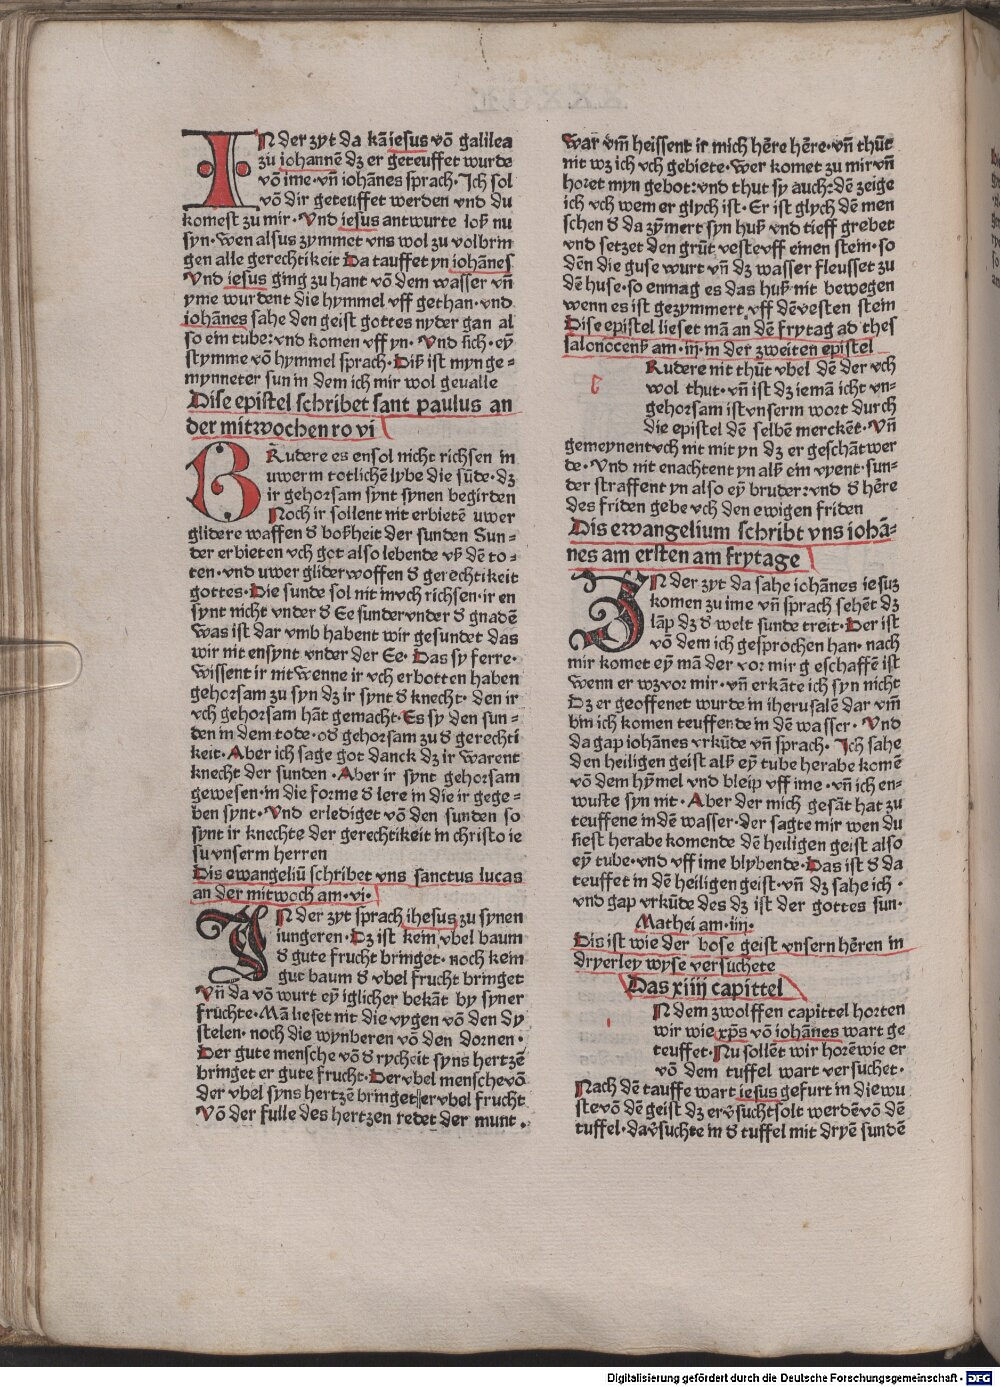 IN der zyt da kā iesus vō galilea
zu iohannē dz er geteuffet wurde
vō ime · vñ iohānes sprach · Ich sol
vō dir geteuffet werden vnd du
komest zu mir · Vnd iesus antwurte loß nu
syn · wen alsus zymmet vns wol zu volbrin
gen alle gerechtikeit Da tauffet yn iohānes
Vnd iesus ging zu hant vō dem wasser vñ
yme wurdent die hymmel vff gethan · vnd
iohānes sahe den geist gottes nyder gan al
so ein tube: vnd komen vff yn · Vnd sich · ey̅
stymme vō hymmel sprach · Diß ist myn ge=
mynneter sun in dem ich mir wol geualle
Dise epistel schribet sant paulus an
der mitwochen ro vi
BRudere es ensol nicht richsen in
uwerm totlichē lybe die sūde · dz
ir gehorsam synt synen begirden
Noch ir sollent nit erbietē uwer
glidere waffen d̕ boßheit der sunden Sun=
der erbieten vch got also lebende vß dē to=
ten · vnd uwer glider woffen d̕ gerechtikeit
gottes · Die sunde sol nit in vch richsen · ir en
synt nicht vnder d̕ Ee sunder vnder d̕ gnadē
Was ist dar vmb habent wir gesundet das
wir nit ensynt vnder der Ee · Das sy ferre ·
Wissent ir nit wenne ir vch erbotten haben
gehorsam zu syn dz ir synt d̕ knecht · den ir
vch gehorsam hāt gemacht · Es sy den sun=
den in dem tode · od̕ gehorsam zu d̕ gerechti
keit · Aber ich sage got danck dz ir warent
knecht der sunden · Aber ir synt gehorsam
gewesen · in die forme d̕ lere in die ir gege=
ben synt · Vnd erlediget vō den sunden so
synt ir knechte der gerechtikeit in christo ie
su vnserm herren
Dis ewangeliū schribet vns sanctus lucas
an der mitwoch am · vi ·
IN der zyt sprach ihesus zu synen
iungeren · Dz ist kein vbel baum
d̕ gute frucht bringet · noch kein
gut baum d̕ vbel frucht bringet
Vñ da vō wurt ey̅ iglicher bekāt by syner
fruchte · Mā lieset nit die vygen vō den dy
stelen · noch die wynberen vō den dornen ·
Der gute mensche vō d̕ rycheit syns hertzē
bringet er gute frucht · Der vbel mensche vō
der vbel syns hertzē bringet er vbel frucht
Vō der fulle des hertzen redet der munt ·
war vm̄ heissent ir mich hēre hēre · vñ thūt
nit wz ich vch gebiete · Wer komet zu mir vñ
horet myn gebot: vnd thut sy auch: dē zeige
ich vch wem er glych ist · Er ist glych dē men
schen d̕ da zȳmert syn huß vnd tieff grebet
vnd setzet den grūt veste vff einen stein · so
dēn die guse wurt vñ dz wasser fleusset zu
dē huse · so enmag es das huß nit bewegen
wenn es ist gezymmert vff dē vesten stein
Dise epistel lieset mā an dē frytag ad thes
salonocenß am · iij · in der zweiten epistel
Rudere nit thūt vbel dē der vch
wol thut · vñ ist dz iemā icht vn=
gehorsam ist vnserm wort durch
die epistel dē selbē merckēt · Vñ
gemeynent vch nit mit yn dz er geschāt wer
de · Vnd nit enachtent yn alß ein vyent · sun=
der straffent yn also ey̅ bruder: vnd d̕ hēre
des friden gebe vch den ewigen friden
Dis ewangelium schribt vns iohā=
nes am ersten am frytage
IN der zyt da sahe iohānes iesuz
komen zu ime vñ sprach sehēt dz
lāp dz d̕ welt sunde treit · Der ist
vō dem ich gesprochen han · nach
mir komet ey̅ mā der vor mir geschaffē ist
wenn er wz vor mir · vñ erkāte ich syn nicht
Dz er geoffenet wurde in iherusalē dar vm̄
bin ich komen teuffende in dē wasser · Vnd
da gap iohānes vrkūde vñ sprach · Ich sahe
den heiligen geist alß ey̅ tube herabe komē
vō dem hȳmel vnd bleip vff ime · vñ ich en=
wuste syn nit · Aber der mich gesāt hat zu
teuffene in dē wasser · der sagte mir wen du
siest herabe komende dē heiligen geist also
ey̅ tube · vnd vff ime blybende · Das ist d̕ da
teuffet in dē heiligen geist · vñ dz sahe ich ·
vnd gap vrkūde des dz ist der gottes sun ·
Mathei am · iiij ·
Dis ist wie der bose geist vnsern hēren in
dryerley wyse versuchete
Das xiiij capittel
N dem zwolffen capittel horten
wir wie xp̄s vō iohānes wart ge
teuffet · Nu sollēt wir horē wie er
vō dem tuffel wart versuchet ·
Nach dē tauffe wart iesus gefurt in die wu
ste vō dē geist dz er v̕sucht solt werdē vō dē
tuffel · da v̕suchte in d̕ tuffel mit dryē sundē
Digitalisierung gefördert durch die Deutsche Forschungsgemeinschaft · DFG